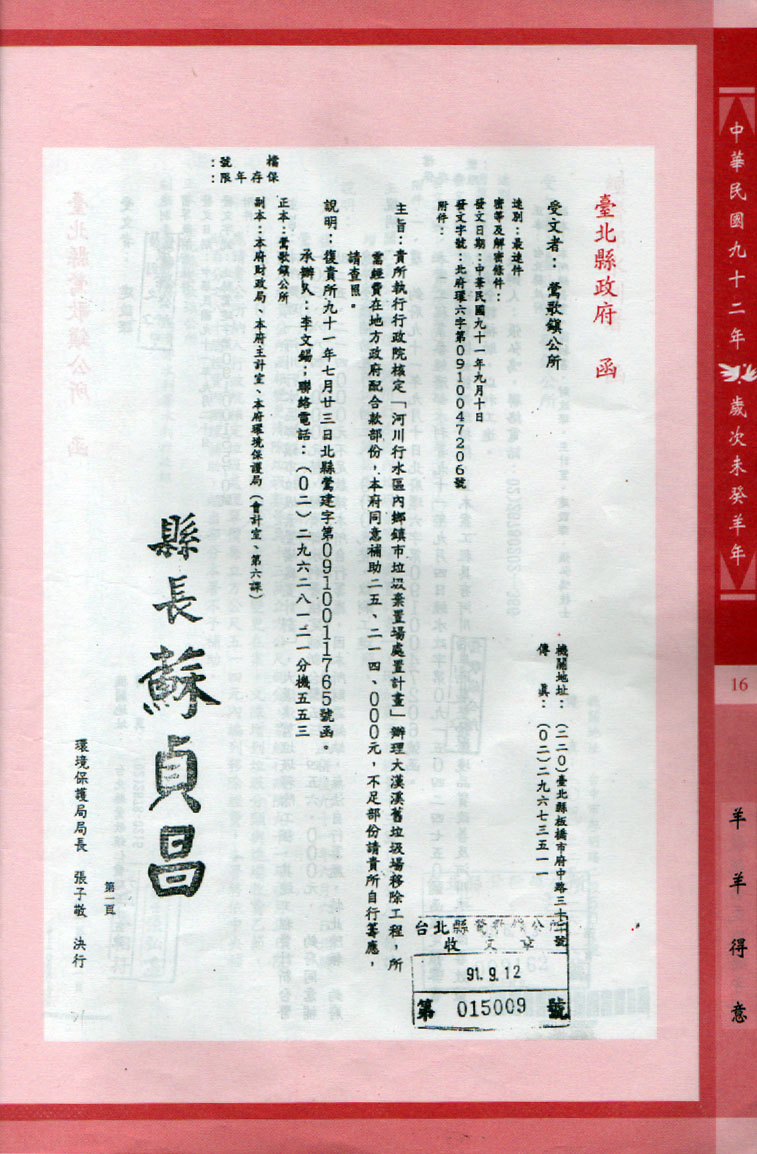 臺北縣政府 函
檔號：
保存年限：
機關地址：(二二0)臺北縣板橋市府中路三十一號
傳真：(0二)二九六七三五一一
受文者：鶯歌鎮公所
速別：最速件
密等及解密條件：
發文日期：中華民國九十一年九月十日
發文字號：北府環六字第0910047206號
附件：
主旨：貴所執行行政院核定「河川行水區內鄉鎮市垃圾棄置場處置計畫」辦理大漢溪舊垃圾場移除工程，所
需經費在地方政府配合款部份，本府同意補助二五、二一四、000元，不足部份請貴所自行籌應，
請查照。
說明：復貴所九十一年七月廿三日北縣鶯建字第0910011765號函。
承辦人：李文錫；聯絡電話：(0二)二九六二八一二一分機五五三
正本：鶯歌鎮公所
副本：本府財政局、本府主計室、本府環境保護局(會計室、第六課)
縣長 蘇貞昌
環境保護局局長 張子敬 決行
第一頁
台北縣鶯歌鎮公所
收文章
91.9.12
第 015009 號
中華民國九十二年 歲次未癸羊年
16
羊羊得意